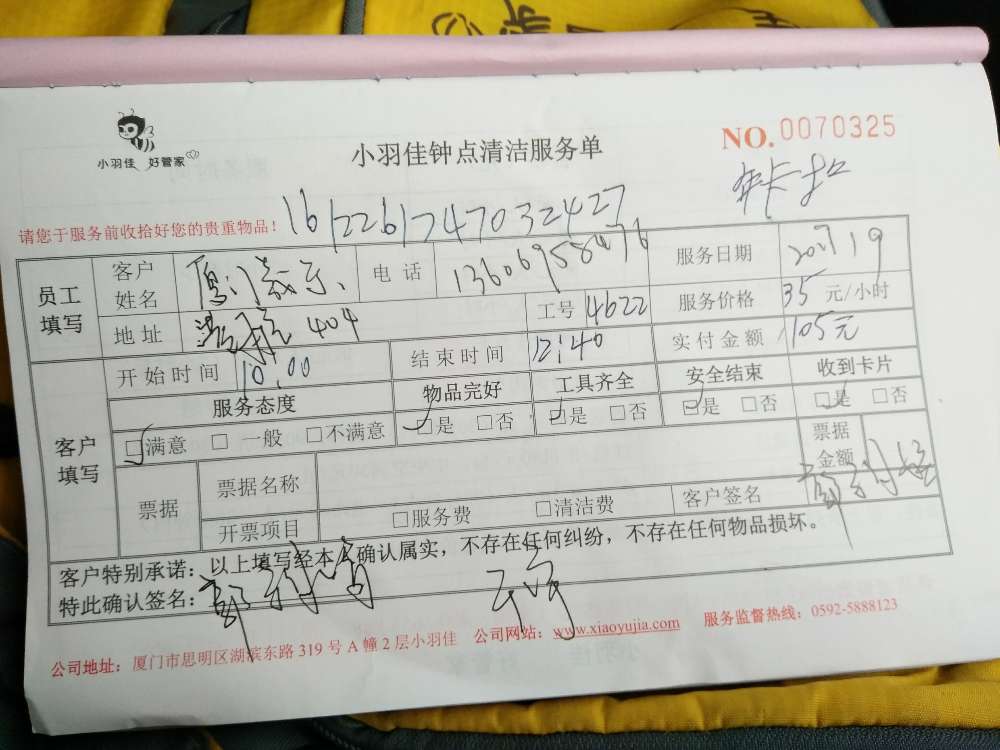 小羽佳 好管家
小羽佳钟点清洁服务单
NO.0070325
请您于服务前收拾好您的贵重物品！
1612261747032427
员工填写 客户姓名 电话 13606958476 服务日期
地址 404 工号 4622 服务价格 35 元/小时
客户填写 开始时间 10:00 结束时间 12:40 实付金额 105元
服务态度 物品完好 工具齐全 安全结束 收到卡片
□满意 □一般 □不满意 □是 □否 □是 □否 □是 □否 □是 □否
票据 票据名称 票据金额
开票项目 □服务费 □清洁费 客户签名
客户特别承诺：以上填写经本人确认属实，不存在任何纠纷，不存在任何物品损坏。
特此确认签名：
公司地址：厦门市思明区湖滨东路319号A幢2层小羽佳 公司网站：www.xiaoyujia.com 服务监督热线：0592-5888123